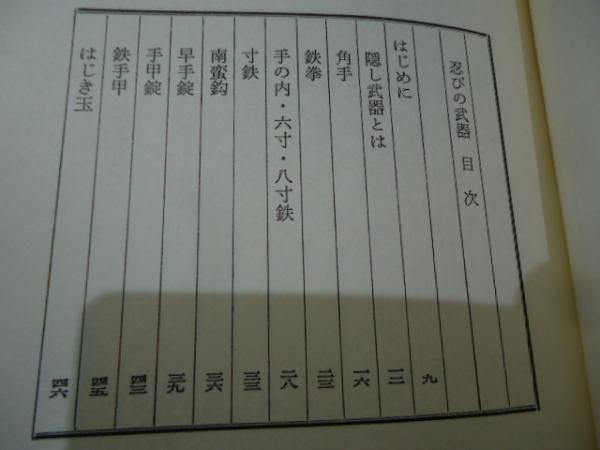 忍びの武器 目次
はじめに 九
隠し武器とは 一二
角手 一六
鉄拳 二三
手の内・六寸・八寸鉄 二八
寸鉄 三三
南蛮鈎 三六
早手錠 三九
手甲錠 四三
鉄手甲 四五
はじき玉 四六